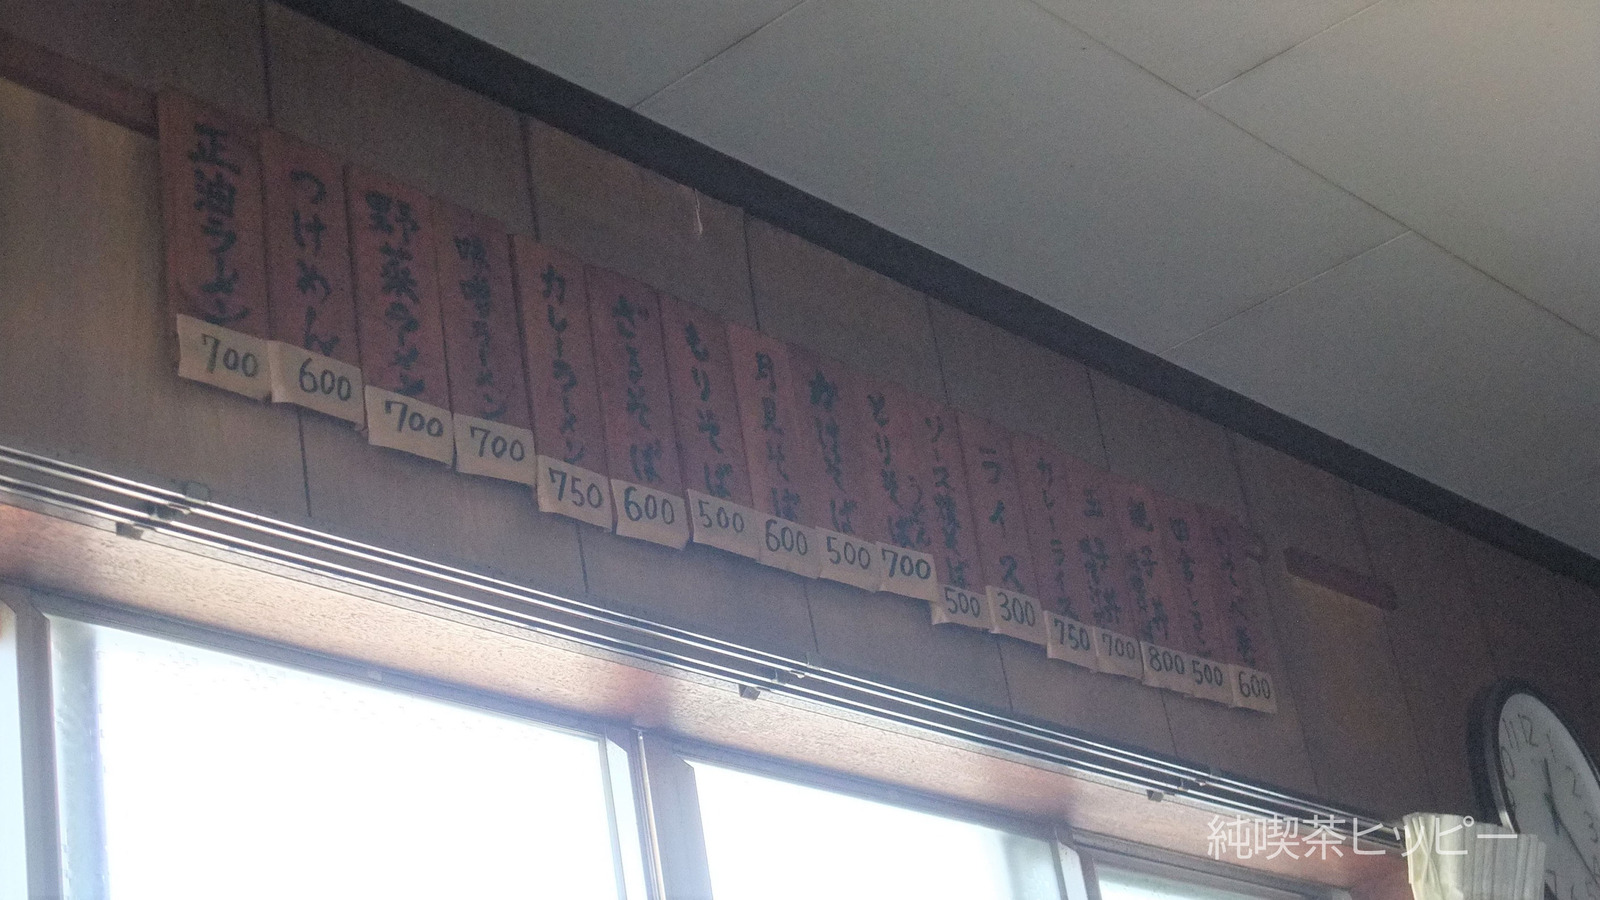 正油ラーメン
700
つけめん
600
野菜ラーメン
700
味噌ラーメン
700
カレーラーメン
750
ざるそば
600
もりそば
500
月見そば
600
かけそば
500
とりそば
うどん
700
ソース焼そば
500
ライス
300
カレーライス
750
玉子丼
700
親子丼
800
500
600
12
1
2
3
純喫茶ヒッピー